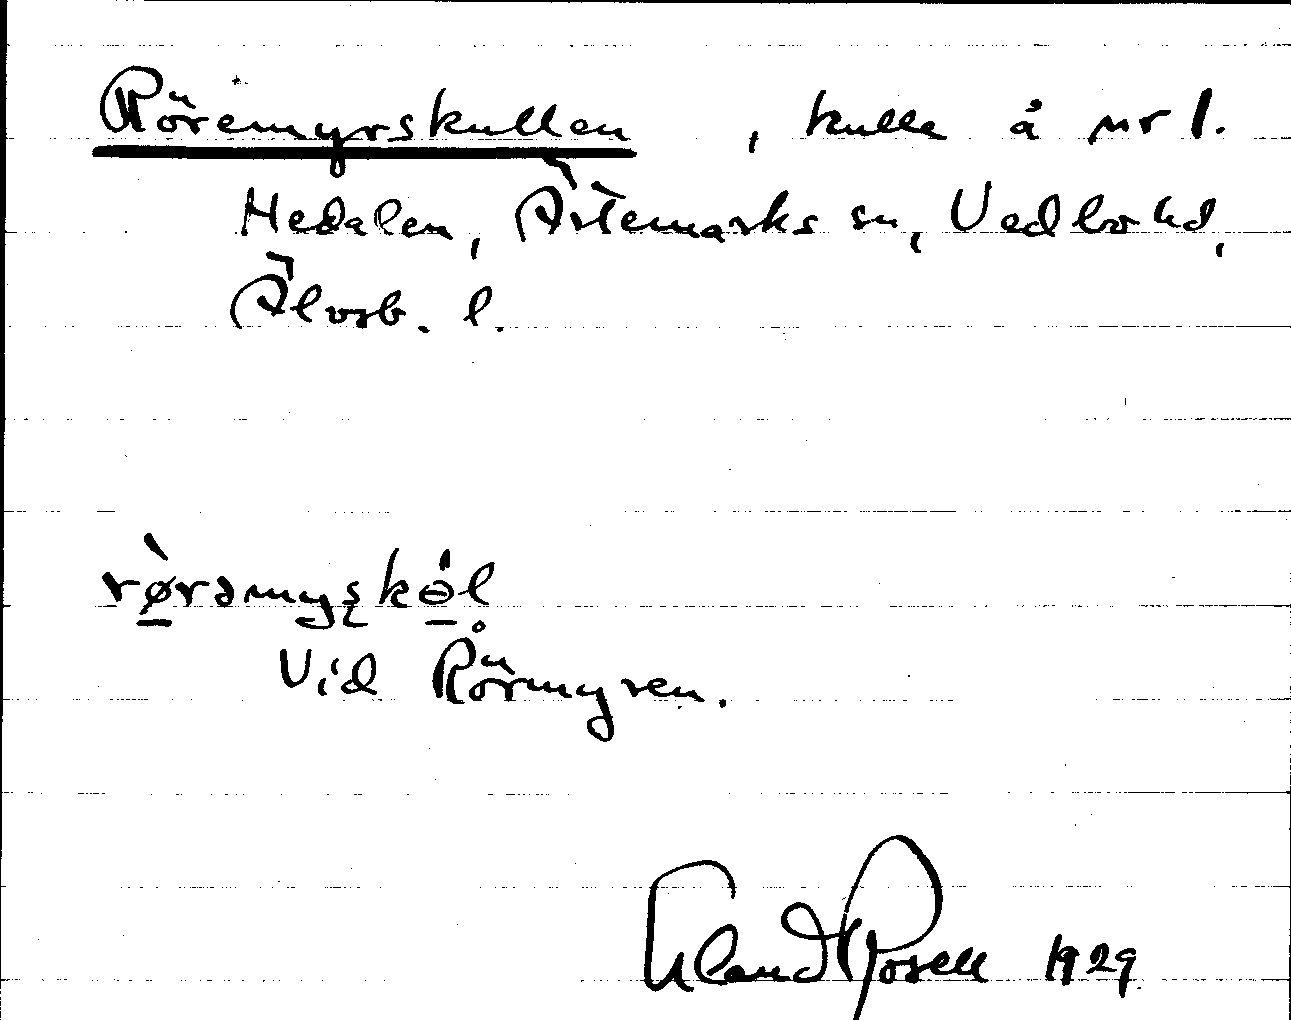 Röremyrskullen, kulle å nr 1.
Hedalen, Ärtemarks sn, Vedbo hd,
Älvsb. l.
rø̀rəmyskɵ́l
Vid Rörmyren.
Erland Rosell 1929